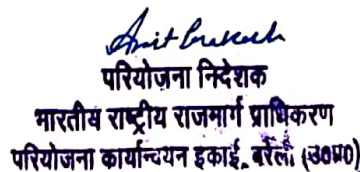 Amit Prakash
परियोजना निदेशक
भारतीय राष्ट्रीय राजमार्ग प्राधिकरण
परियोजना कार्यान्वयन इकाई, बरेली (उ०प्र०)